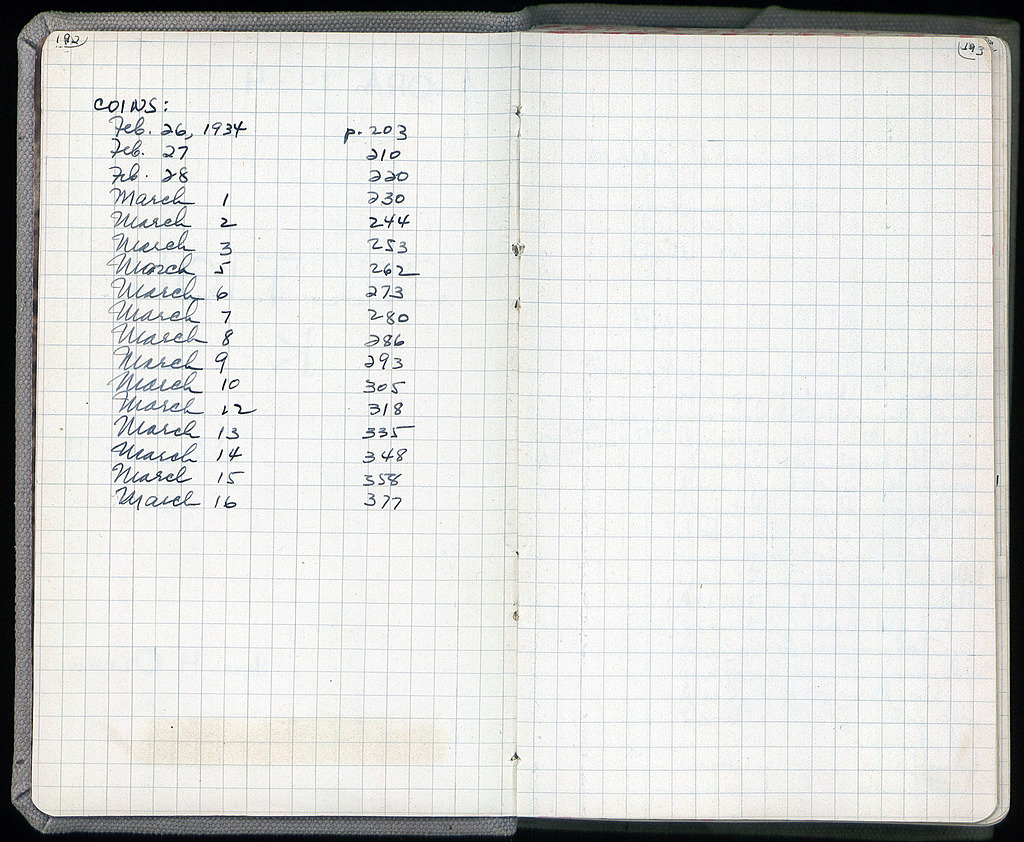 192
193
COINS:
Feb. 26, 1934 p. 203
Feb. 27 210
Feb. 28 220
March 1 230
March 2 244
March 3 253
March 5 262
March 6 273
March 7 280
March 8 286
March 9 293
March 10 305
March 12 318
March 13 335
March 14 348
March 15 358
March 16 377